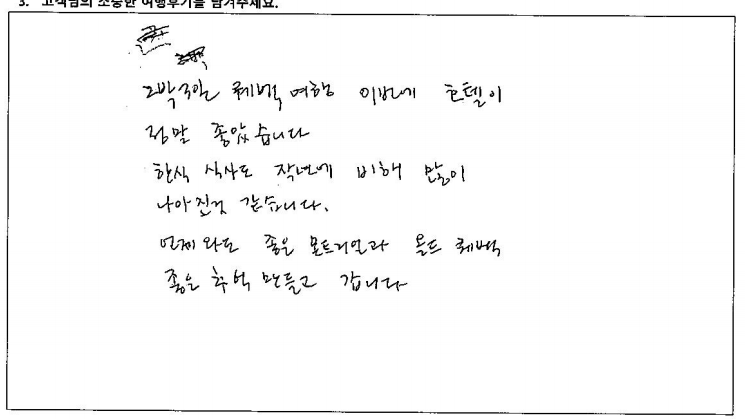 3. 고객님의 소중한 여행후기를 남겨주세요.
2박3일 퀘벡 여행 이번에 호텔이
정말 좋았습니다
한식 식사도 작년에 비해 많이
나아진것 같습니다.
언제 와도 좋은 몬트리얼과 올드 퀘벡
좋은 추억 만들고 갑니다